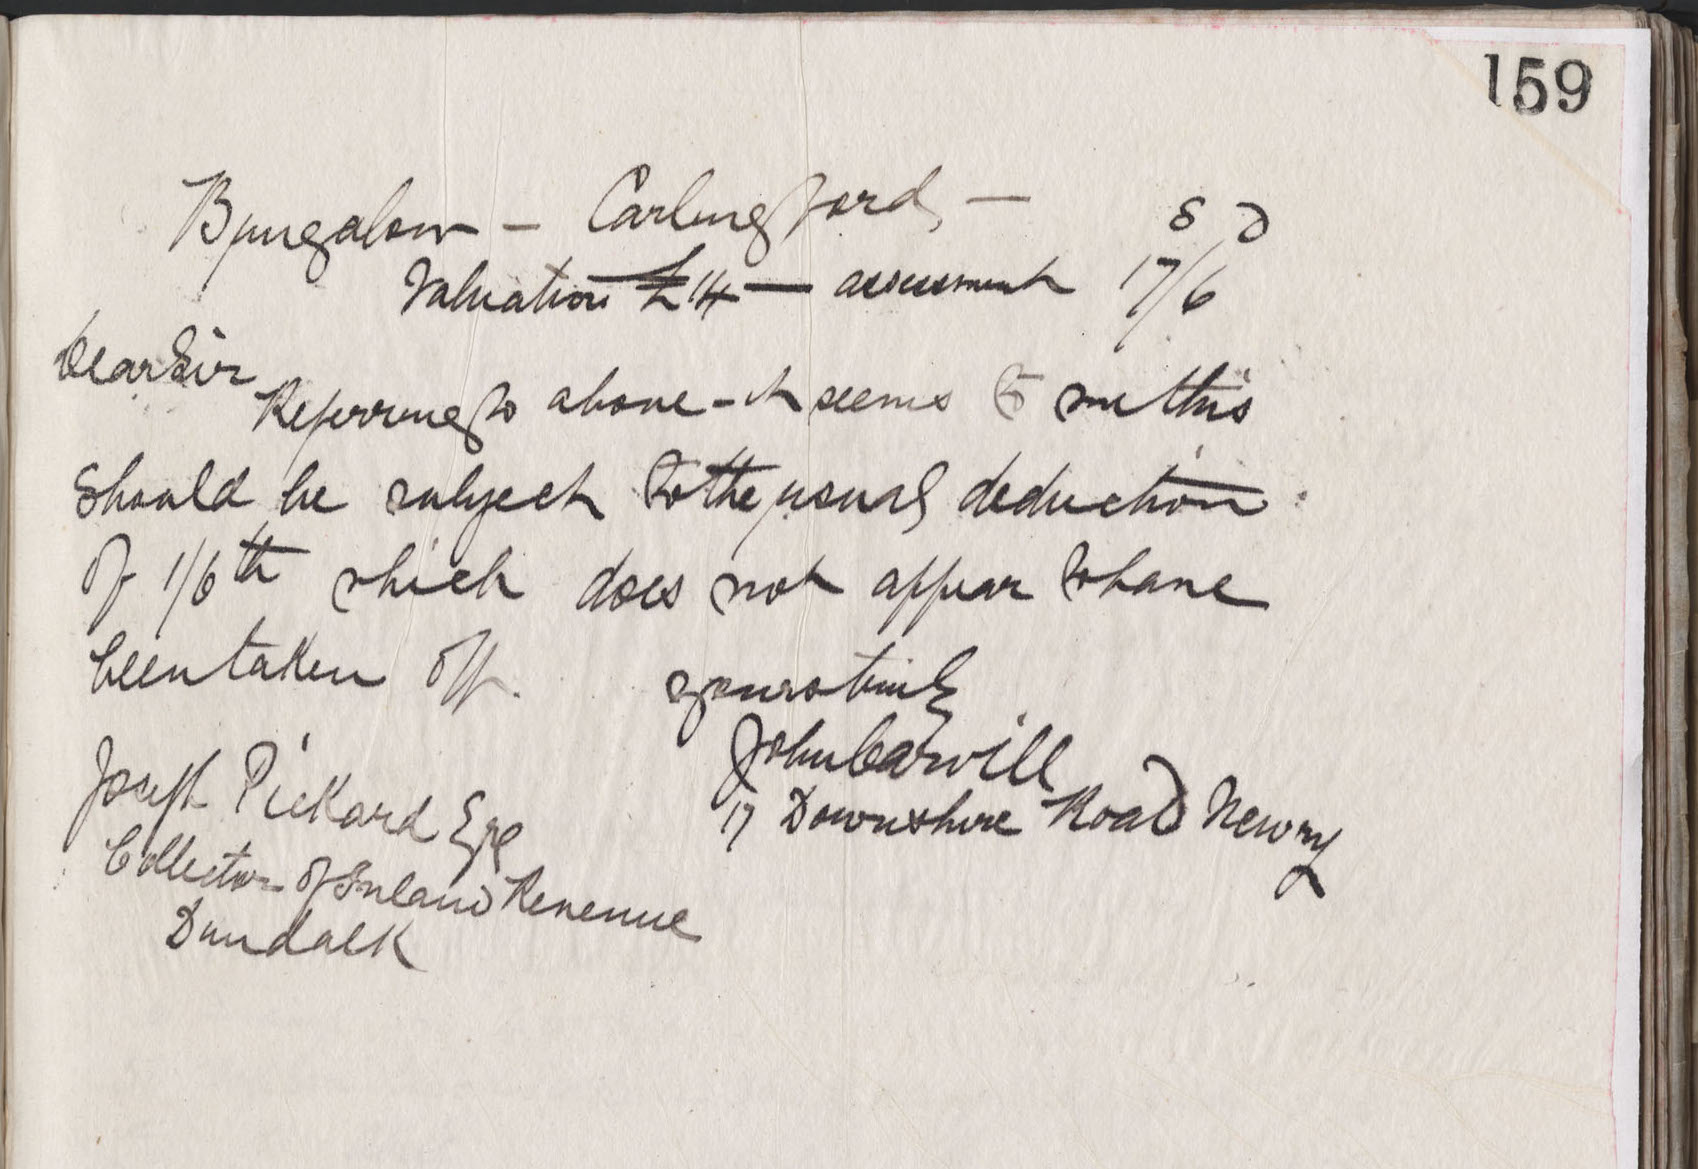 159
Bungalow - Carlingford, -
S D
Valuation £14 - assessment 17/6
Dear Sir
Referring to above - it seems to me this
should be subject to the usual deduction
of 1/6th which does not appear to have
been taken off.
yours truly
John Carvill
17 Downshire Road Newry
Joseph Pickard Esq
Collector of Inland Revenue
Dundalk